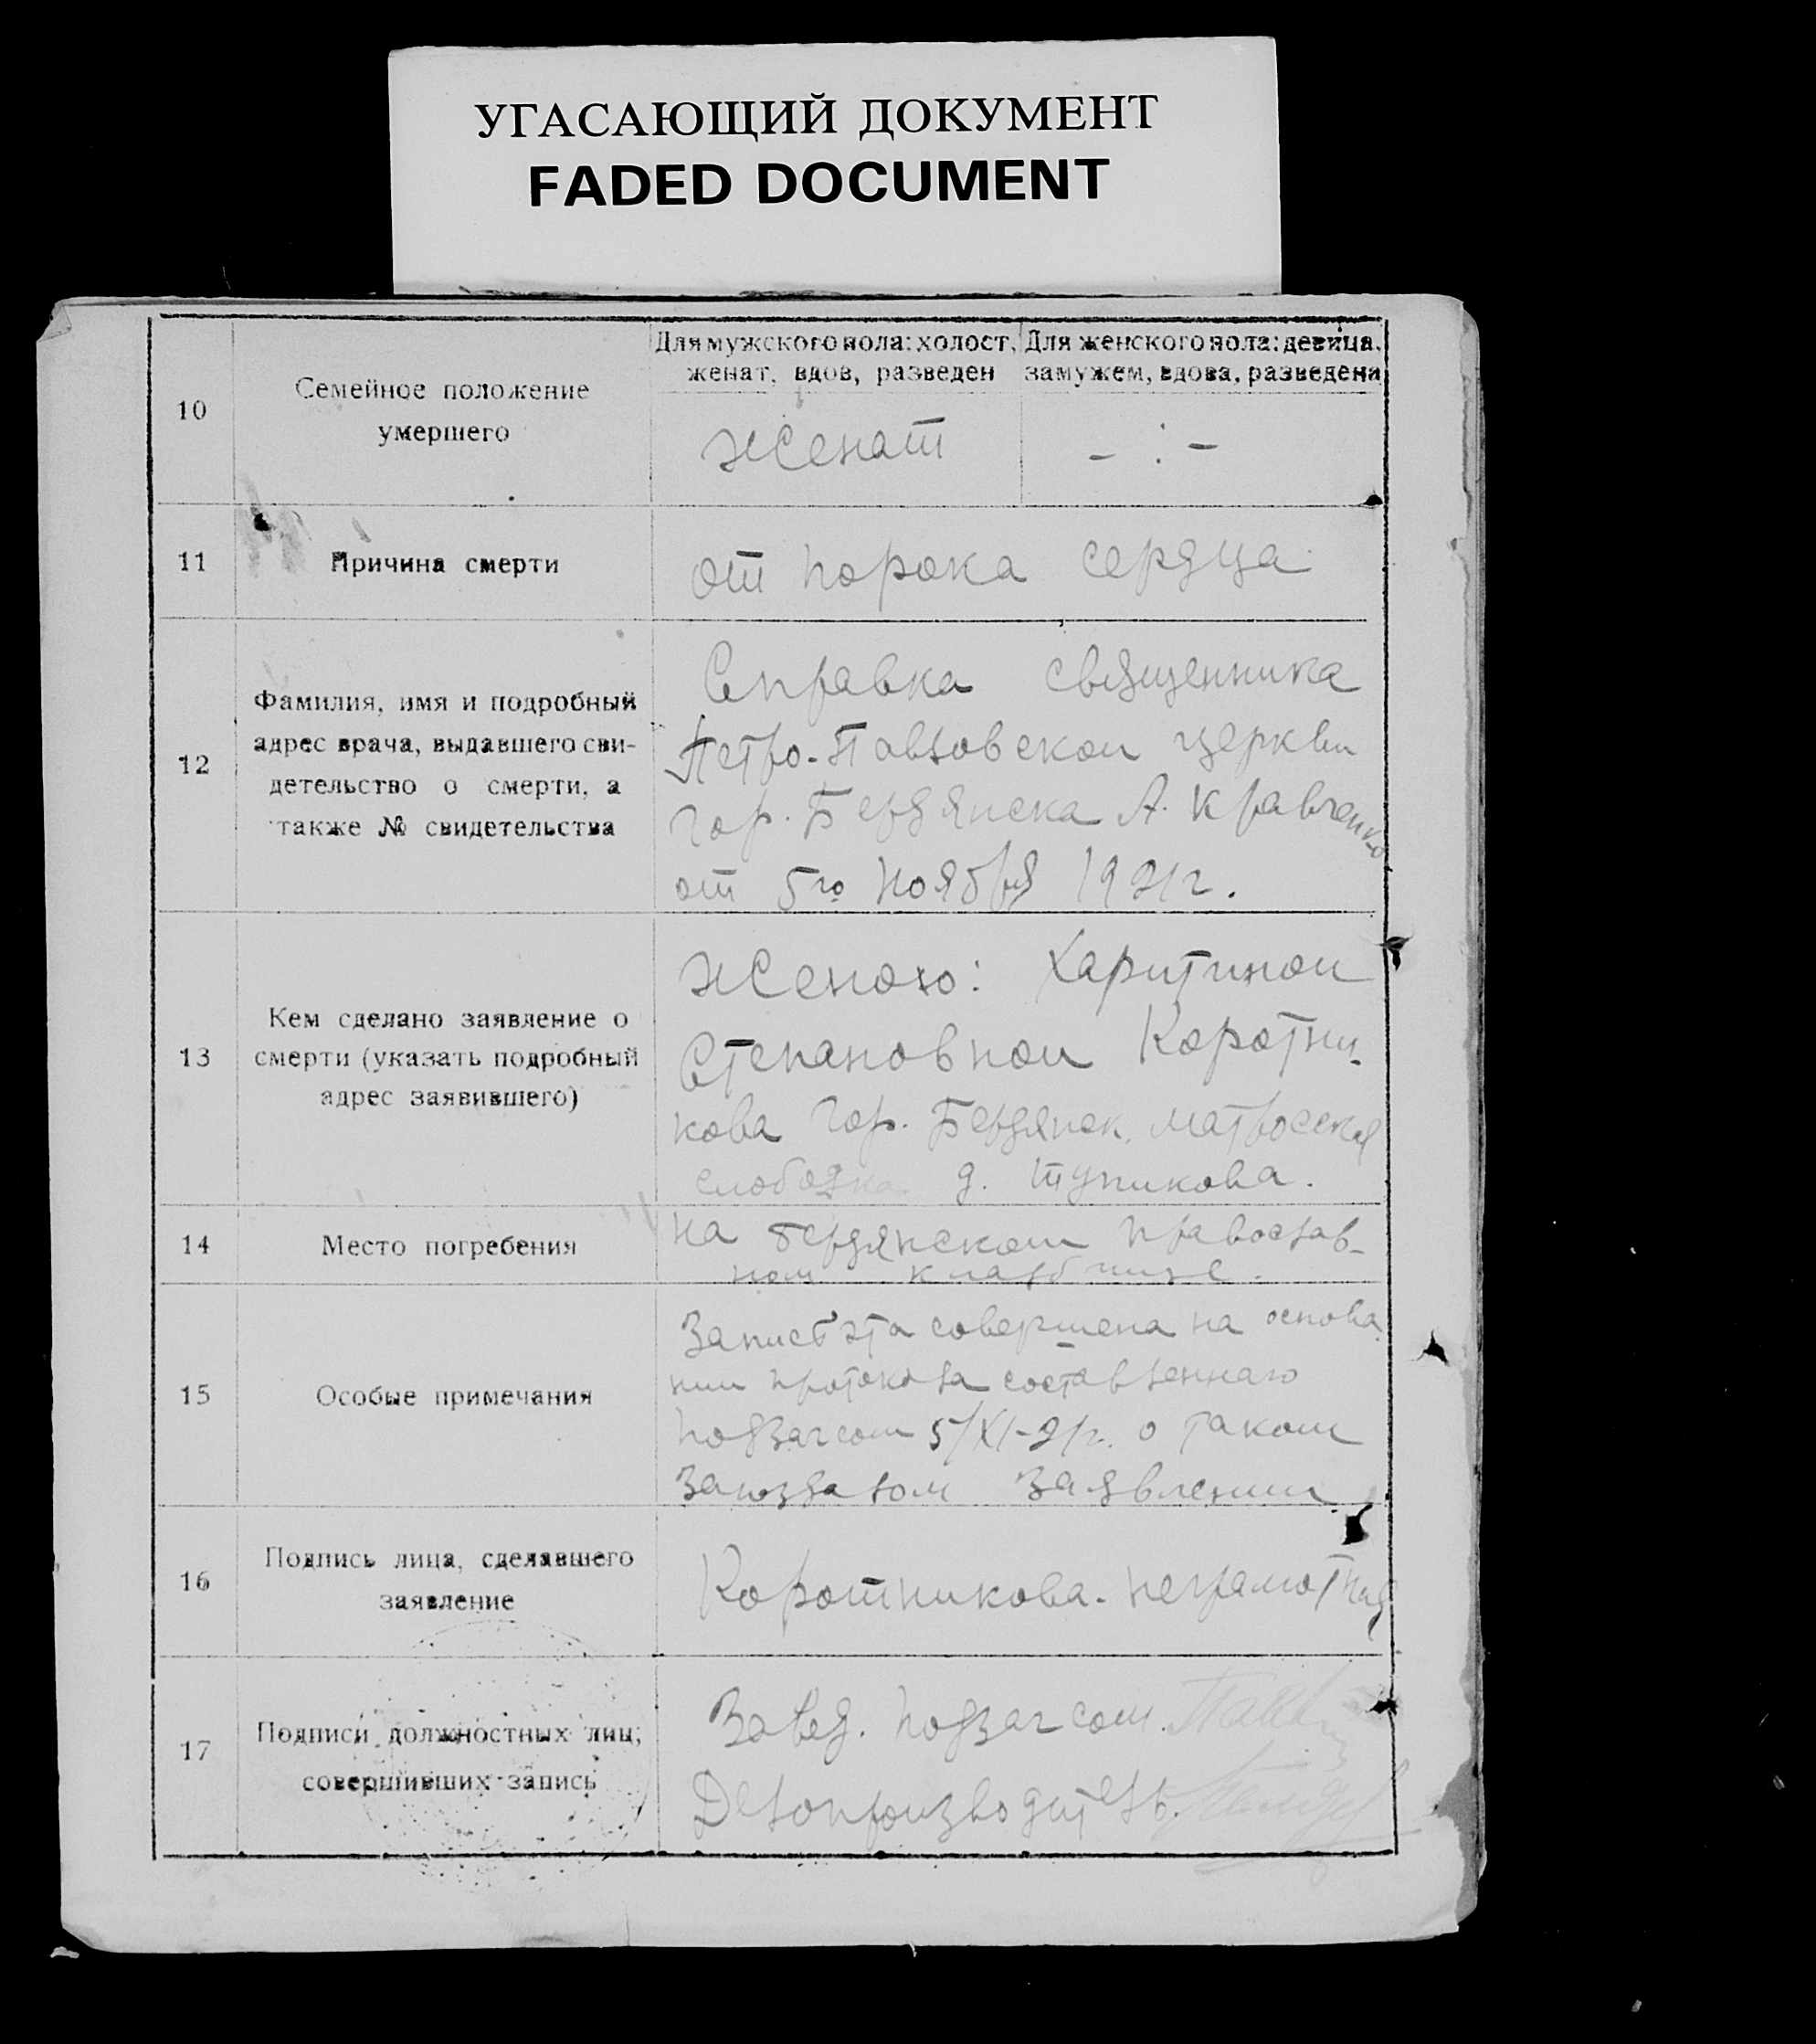 УГАСАЮЩИЙ ДОКУМЕНТ
FADED DOCUMENT
10
Семейное положение
умершего
Для мужского пола: холост,
женат, вдов, разведен
Для женского пола: девица,
замужем, вдова, разведена
женат
- : -
11
Причина смерти
от порока сердца
12
Фамилия, имя и подробный
адрес врача, выдавшего сви-
детельство о смерти, а
также № свидетельства
Справка священника
Петро-Павловской церкви
гор. Бердянска А. Кравченко
от 5го ноября 1921г.
13
Кем сделано заявление о
смерти (указать подробный
адрес заявившего)
женою: Харитиной
Степановной Коротни-
кова гор. Бердянск, матросская
слободка д. Тупикова.
14
Место погребения
на бердянском православ-
ном кладбище.
15
Особые примечания
Запись эта совершена на основа
нии протокола составленнаго
подзагсом 5/XI-21г. о таком
запоздалом заявлении
16
Подпись лица, сделавшего
заявление
Коротникова. неграмотная
17
Подписи должностных лиц,
совершивших запись
Завед. подзагсом.
Делопроизводитель.